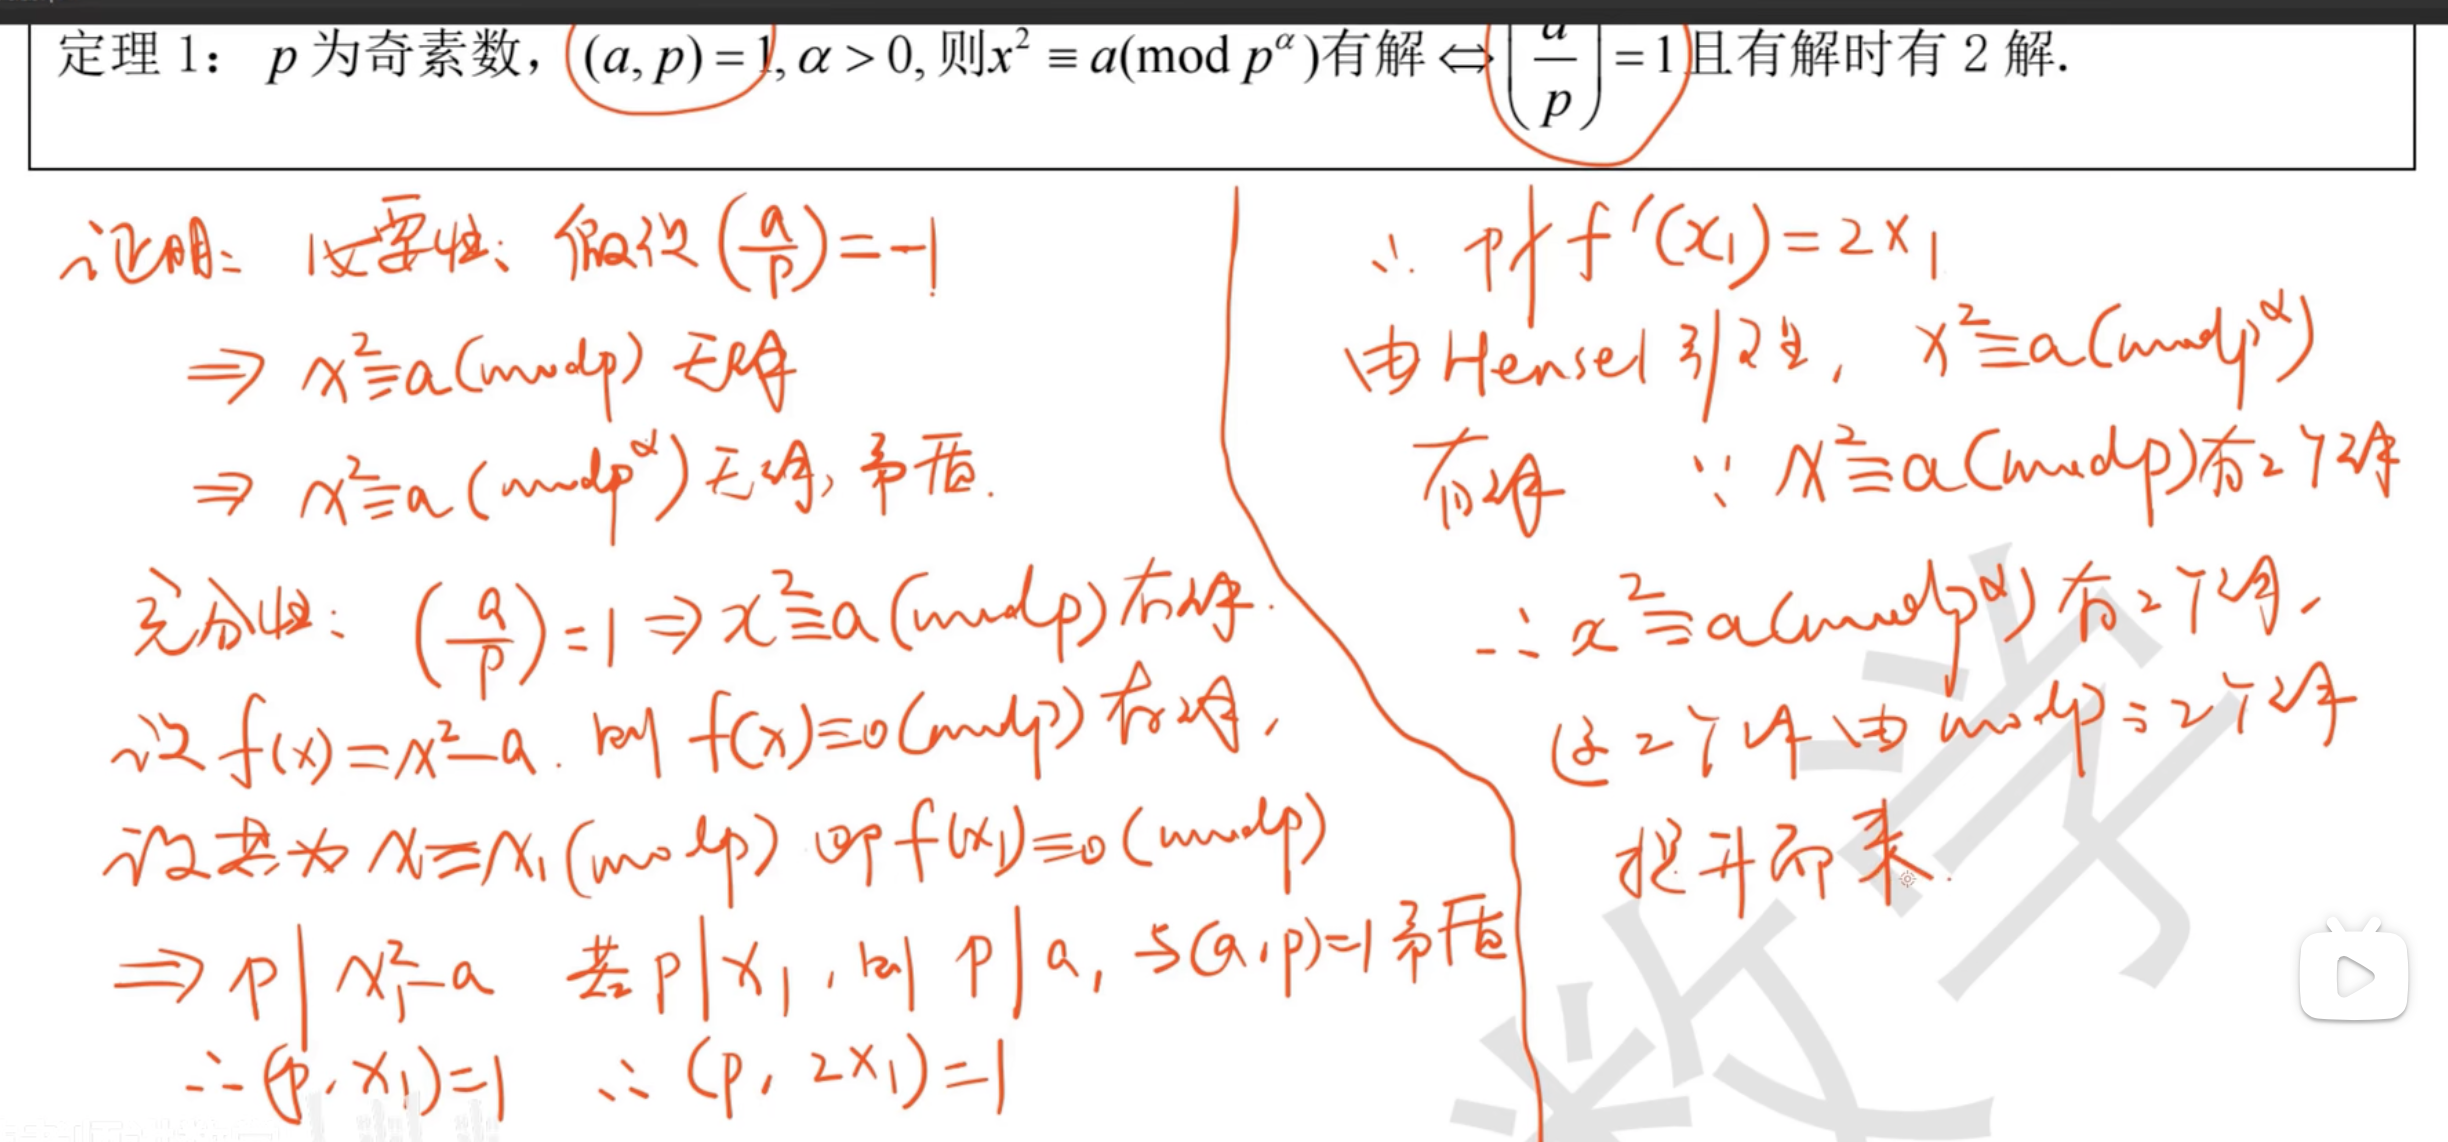 定理 1： p 为奇素数，(a, p) = 1, α > 0, 则x² ≡ a(mod p^α)有解 ⇔ (a/p) = 1且有解时有 2 解.
证明: 必要性: 假设 (a/p) = -1
⇒ x² ≡ a (mod p) 无解
⇒ x² ≡ a (mod p^α) 无解, 矛盾.
充分性: (a/p) = 1 ⇒ x² ≡ a (mod p) 有解.
设 f(x) = x² - a. 则 f(x) ≡ 0 (mod p) 有解,
设其为 x ≡ x₁ (mod p) 即 f(x₁) ≡ 0 (mod p)
⇒ p | x₁² - a 若 p | x₁, 则 p | a, 与(a, p) = 1 矛盾
∴ (p, x₁) = 1 ∴ (p, 2x₁) = 1
∴ p ∤ f′(x₁) = 2x₁
由 Hensel 引理, x² ≡ a (mod p^α)
有解 ∵ x² ≡ a (mod p) 有2个解
∴ x² ≡ a (mod p^α) 有2个解,
这2个解由 mod p 的2个解
提升而来.
数学